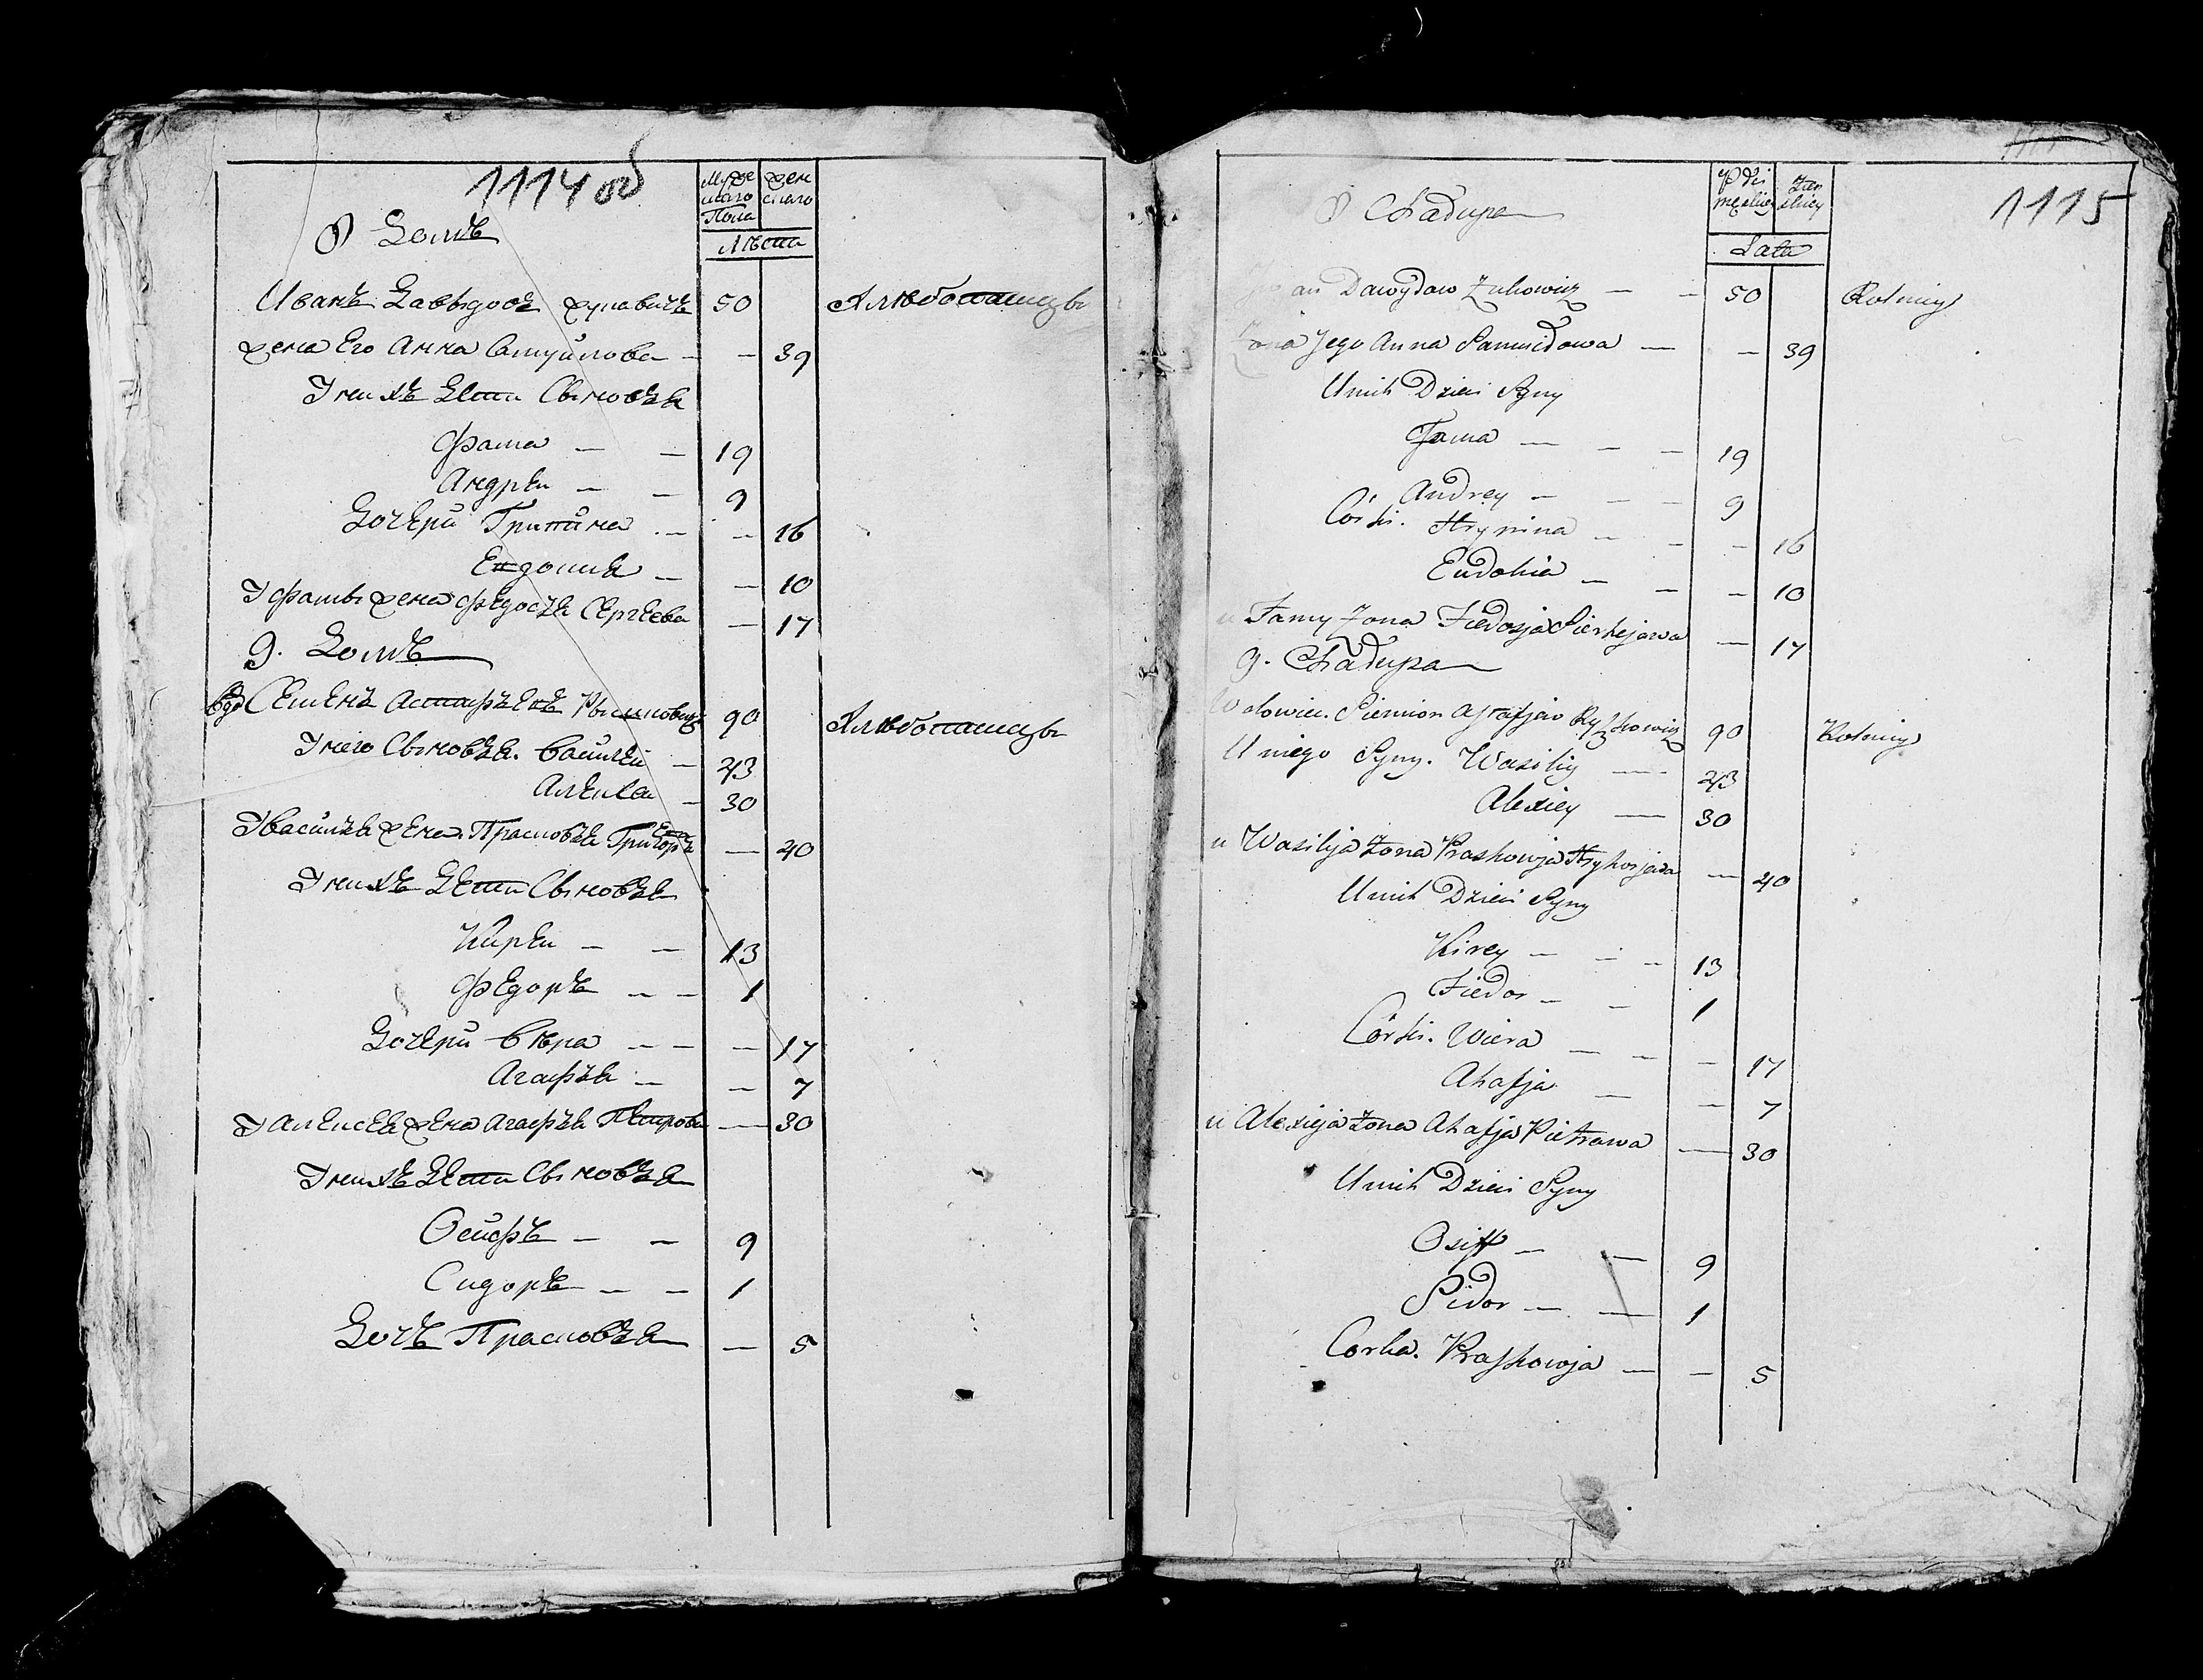 1114 об
Муже
скаго
Пола
жен
скаго
Лѣта
8 Домъ
Иванъ Давыдовъ жукавичъ 50 Хлѣбопашецъ
жена Его Анна Самуилова — — 39
У нихъ Дети Сыновья
Фама — — 19
Андрей — — 9
Дочери Грипина — — 16
Евдокия — — 10
У Фамы жена Федосья Сергеева — 17
9. Домъ
Вдо Семенъ Астафьевъ 90 Хлѣбопашецъ
У него Сыновья. Василей — 43
Алексей — 30
У Василья жена Прасковья Григорьева — 40
У нихъ Дети Сыновья
Кирей — — 13
Федоръ — — 1
Дочери Вѣра — — — 17
Агафья — — 7
У Алексея жена Агафья Петрова — 30
У нихъ Дети Сыновья
Осифъ — — 9
Сидоръ — — 1
Дочь Прасковья — 5
1115
Płci
męskiey
żen
skiey
Lata
8 Chałupa
an Dawydow Żukowicz — — 50 Rolniczy
Żona Jego Anna Samuelowa — — 39
U nich Dzieci Syny
Fama — — — 19
Andrey — — — 9
Córki. Hrypina — — — 16
Eudokia — — — 10
u Famy Żona Fiedosja Sierhejowa — 17
9. Chałupa
Wdowiec. Siemion Astafjew 90 Rolniczy
U niego Syny. Wasiliy — 43
Alexiey — 30
u Wasilja żona Praskowja Hryhorjewa — 40
U nich Dzieci Syny
Kirey — — — 13
Fiedor — — 1
Córki. Wiera — — — 17
Ahafja — — 7
u Alexieja żona Ahafja Pietrowa — 30
U nich Dzieci Syny
Osiff — — 9
Sidor — — 1
Corka. Praskowja — — 5